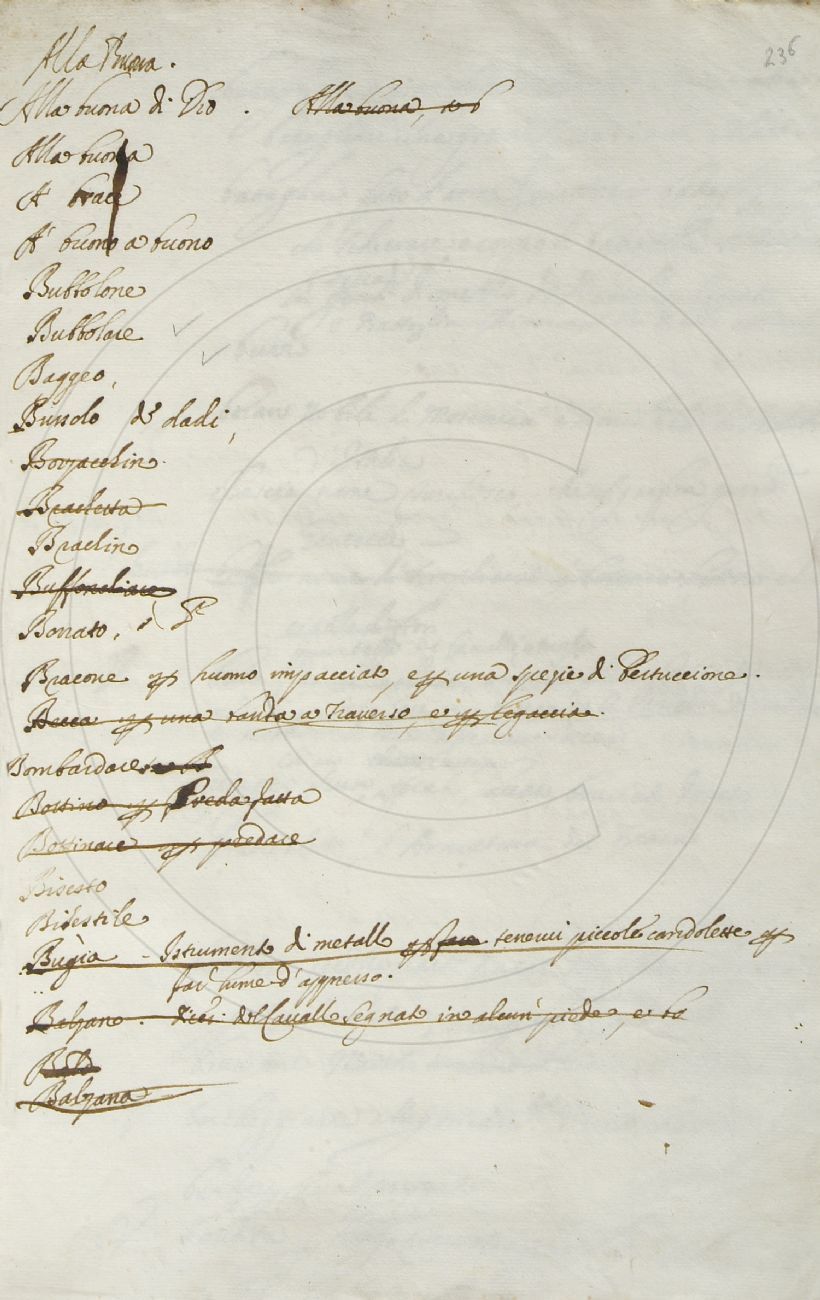 236
Alla Buona.
Alla buona di Dio. Alla buona, e
Alla buona
A brace
A' buono a buono
Bubbolone
Bubbolare
Baggeo,
Bussolo de dadi,
Borzacchino.
Bracheria
Brachino
Buffonchiare
Bonato,
Bracone p huomo impacciato, e p una spezie di Pertuccione.
p una banda a Traverso, e p legaccia.
Bombardare
Bottino p Preda fatta
Bottinare p predare
Bisesto
Bisestile
Bugia - Istrumento di metallo p fare tenervi piccole candolette p
far lume d'appresso.
Balzano. dicesi del Cavallo segnato in alcun piede, e
Balzana
C